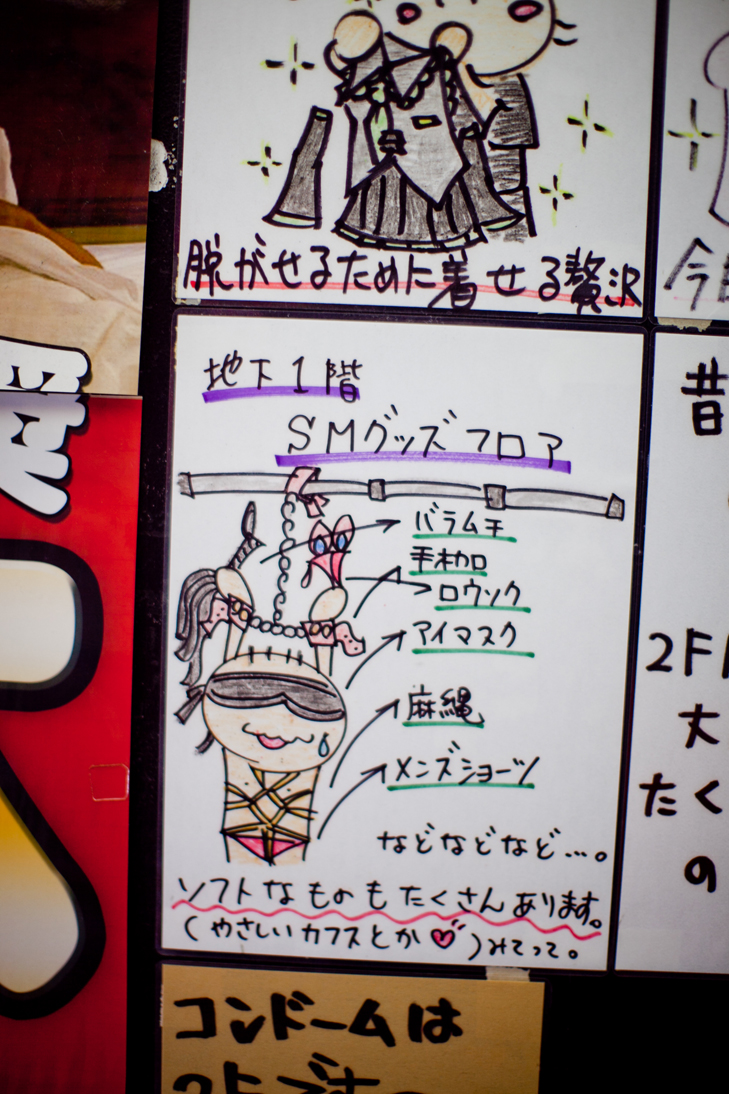 脱がせるために着せる贅沢
地下1階
SMグッズフロア
バラムチ
手枷
ロウソク
アイマスク
麻縄
メンズショーツ
などなどなど…。
ソフトなものもたくさんあります。
(やさしいカフスとか♡)みてって。
コンドームは
今
昔
2F
丈
たく
の